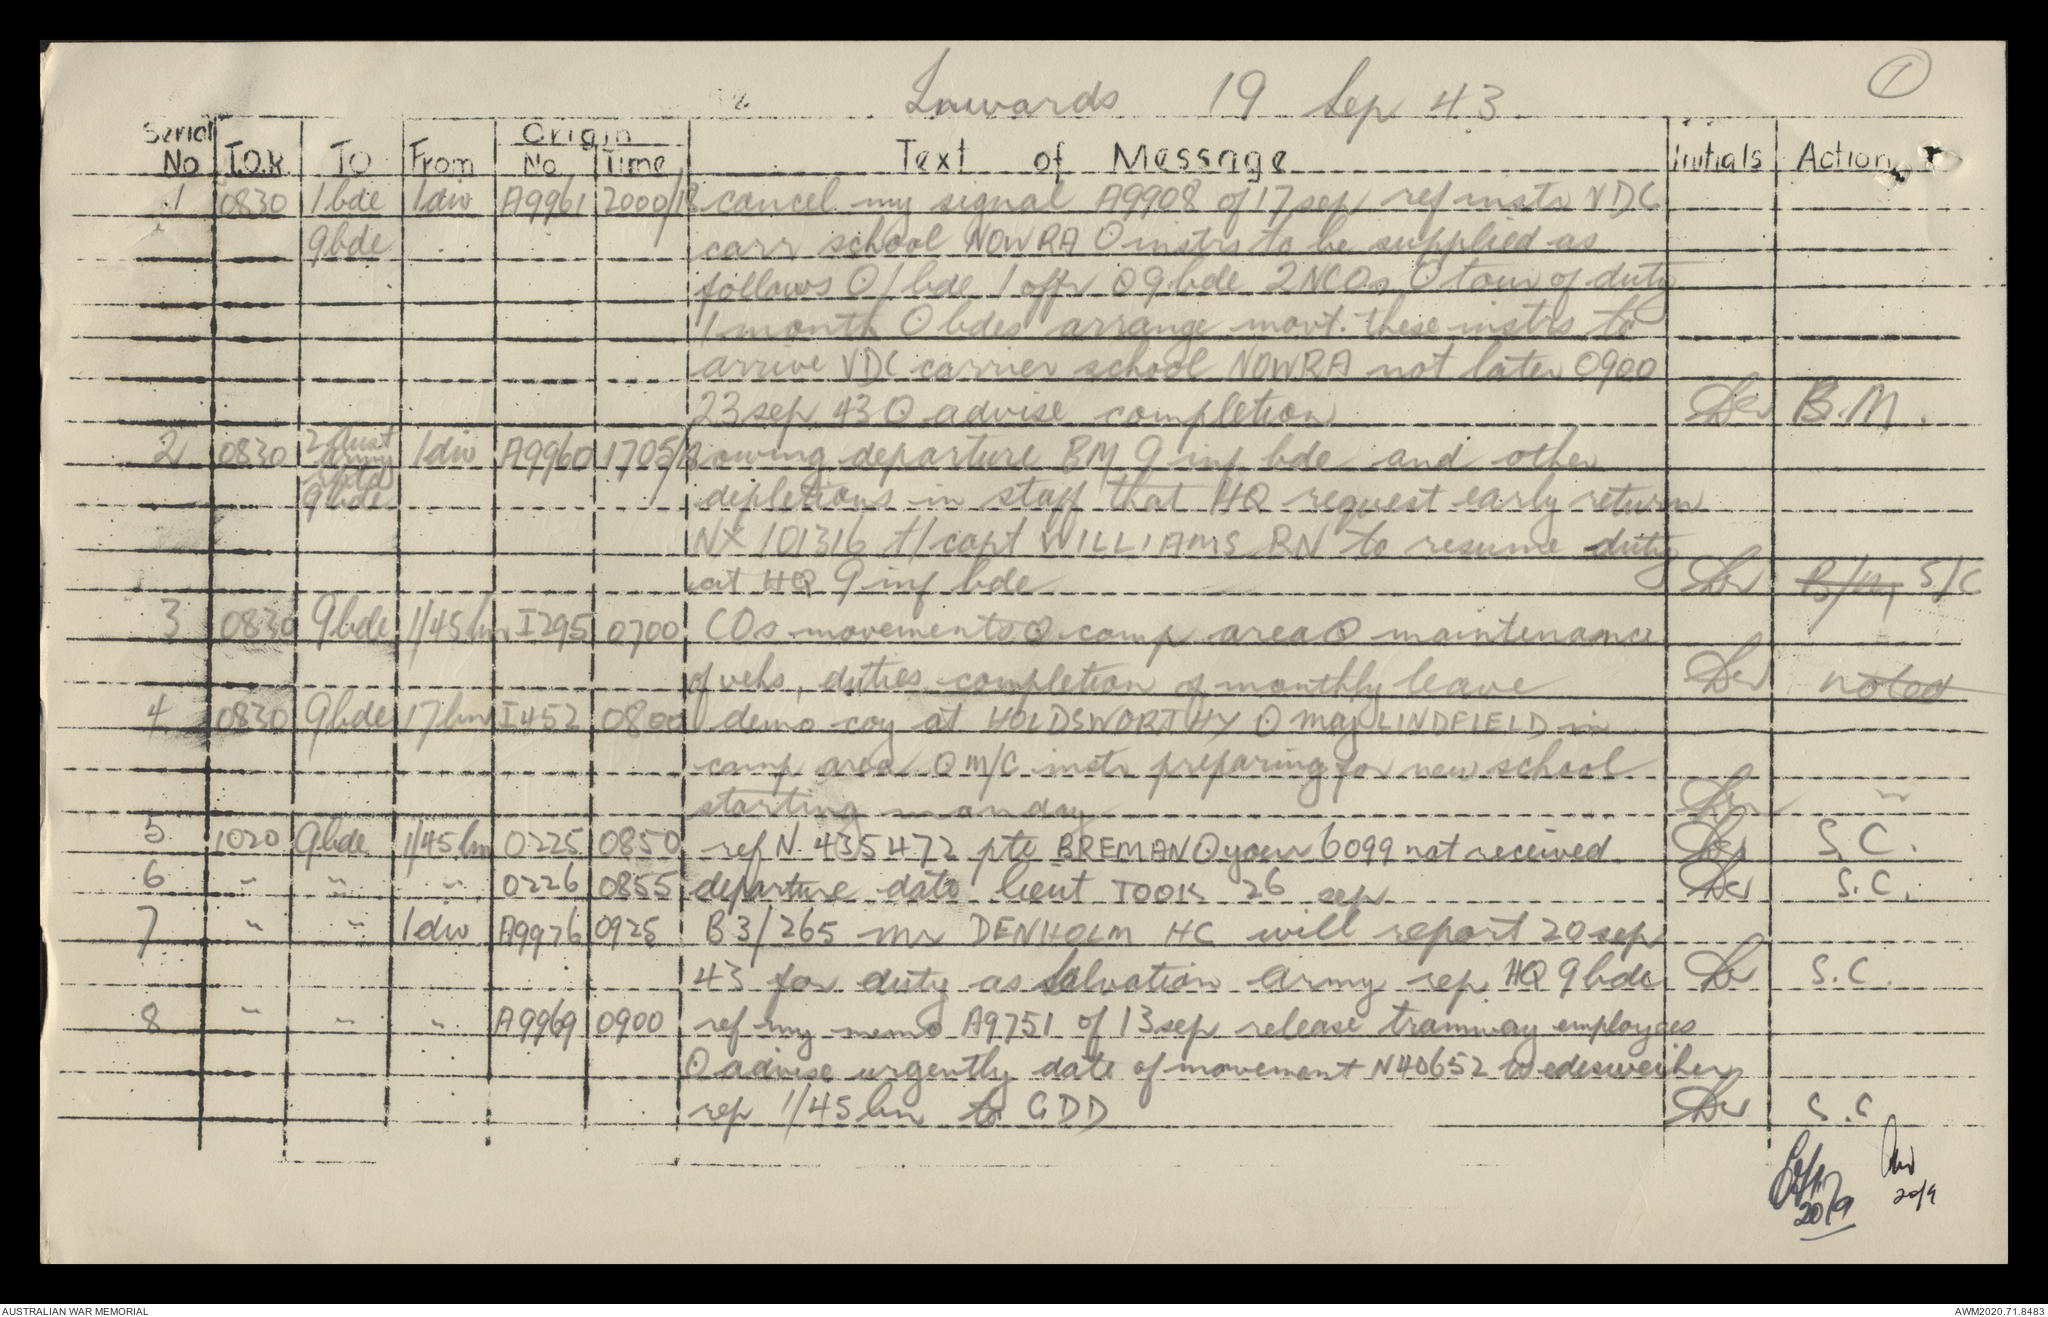 Inwards 19 Sep 43
1
Serial No T.O.R To From Origin No Time Text of Message Initials Action
1 0830 1 bde 1 div A9961 2000/18 cancel my signal A9908 of 17 sep ref instr VDC
9 bde carr school NOWRA O instrs to be supplied as
follows O 1 bde 1 offr O 9 bde 2 NCOs O tour of duty
1 month O bdes arrange movt. these instrs to
arrive VDC carrier school NOWRA not later 0900
23 sep 43 O advise completion B.M.
2 0830 2 Aust army rptd 9 bde 1 div A9960 1705/18 owing departure BM 9 inf bde and other
depletions in staff that HQ request early return
NX 101316 t/capt WILLIAMS RN to resume duty
at HQ 9 inf bde B/M, S/C
3 0830 9 bde 1/45 bn I295 0700 COs movements O camp area O maintenance
of vehs, duties completion of monthly leave noted
4 0830 9 bde 17 bn I452 0800 demo coy at HOLDSWORTHY O maj LINDFIELD in
camp area O M/C instr preparing for new school
starting monday "
5 1020 9 bde 1/45 bn O225 0850 ref N 435472 pte BREMAN O your 6099 not received S.C.
6 " " " O226 0855 departure date lieut TOOK 26 sep S.C.
7 " " 1 div A9976 0925 B3/265 mr DENHOLM HC will report 20 sep
43 for duty as Salvation Army rep HQ 9 bde S.C.
8 " " " A9969 0900 ref my memo A9751 of 13 sep release tramway employees
O advise urgently date of movement N40652
rep 1/45 bn to GDD S.C
20/9 20/9
AUSTRALIAN WAR MEMORIAL AWM2020.71.8483